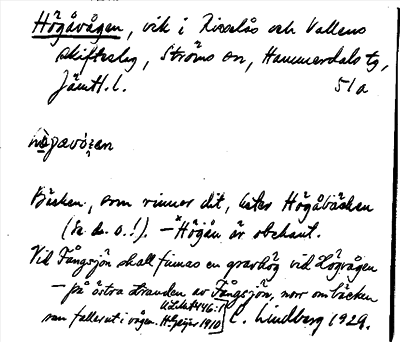 Högåvågen, vik i Risselås och Vallens
skifteslag, Ströms sn, Hammerdals tg,
Jämtl. l. 51a
Bäcken, som rinner dit, heter Högåbäcken
(Sa. de. o.!). – *Högån är obekant.
Vid Fångsjön skall finnas en gravhög vid Högvågen
– på östra stranden av Fångsjön, norr om bäcken
som faller ut i vågen.
C. Lindberg 1929.